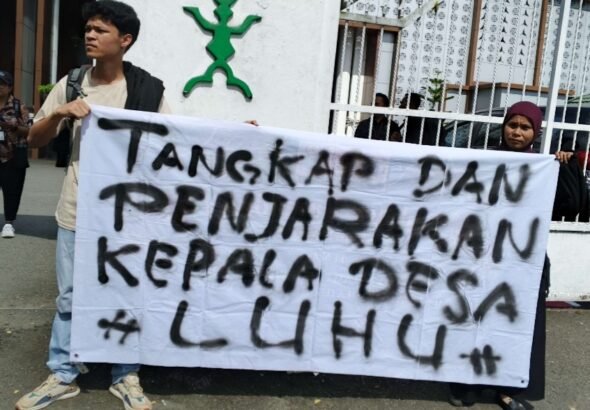 TANGKAP DAN
PENJARAKAN
KEPALA DESA
# LUHU #